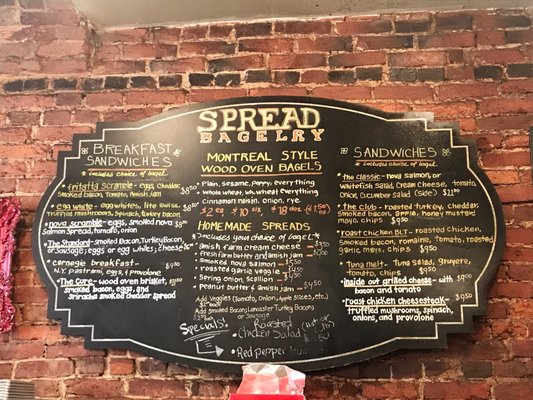 SPREAD
BAGELRY
BREAKFAST
SANDWICHES
* includes choice of bagel
frittatta scramble - eggs, cheddar,
Smoked bacon, tomato, Amish jam
egg white - eggwhites, lite swiss,
Truffled mushrooms, Spinach, turkey bacon
nova scramble - eggs, smoked nova
Salmon Spread, tomato, onion
The Standard - Smoked Bacon, Turkey Bacon,
or Sausage; eggs or egg whites; cheese
carnegie breakfast -
N.Y. pastrami, eggs, & provolone
The Cure - wood oven brisket,
smoked bacon, eggs, and
sriracha smoked cheddar spread
MONTREAL STYLE
WOOD OVEN BAGELS
Plain, sesame, poppy, everything
Whole wheat, wh. wheat everything
Cinnamon raisin, onion, rye
$2 ea $10 six $18 doz
HOMEMADE SPREADS
*Includes your choice of bagel*
amish farm cream cheese -
fresh farm butter and amish jam
smoked nova salmon
roasted garlic veggie
spring onion, scallion
peanut butter & amish jam
Add Veggies (Tomato, Onion, Apple Slices, etc.)
Add Smoked Bacon, Lancaster Turkey Bacon,
or Sausage
Specials:
Roasted
Chicken Salad
Red pepper
SANDWICHES
* includes choice of bagel
the classic - nova salmon, or
whitefish salad, cream cheese, tomato,
onion, cucumber salad (side)
the club - roasted turkey, cheddar,
smoked bacon, apple, honey mustard
mayo, chips $950
roast chicken BLT - Roasted chicken,
Smoked bacon, romaine, tomato, roasted
garlic mayo, chips $950
Tuna melt - Tuna salad, gruyere,
tomato, chips $950
inside out grilled cheese - with
bacon and tomato
roast chicken cheesesteak -
truffled mushrooms, spinach,
onions, and provolone